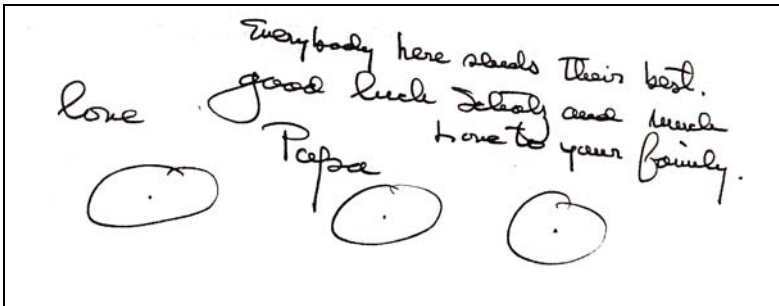 Everybody here sends their best.
good luck and much
love to your family.
love
Papa